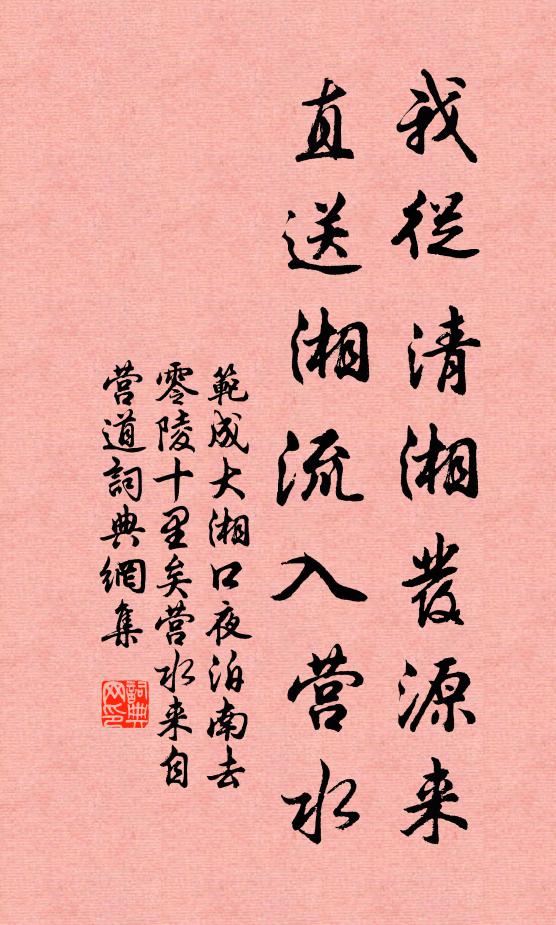 我從清湘發源来
直送湘流入营水
範成大湘口夜泊南去
零陵十里矣营水来自
营道詞典網集
詞典网印